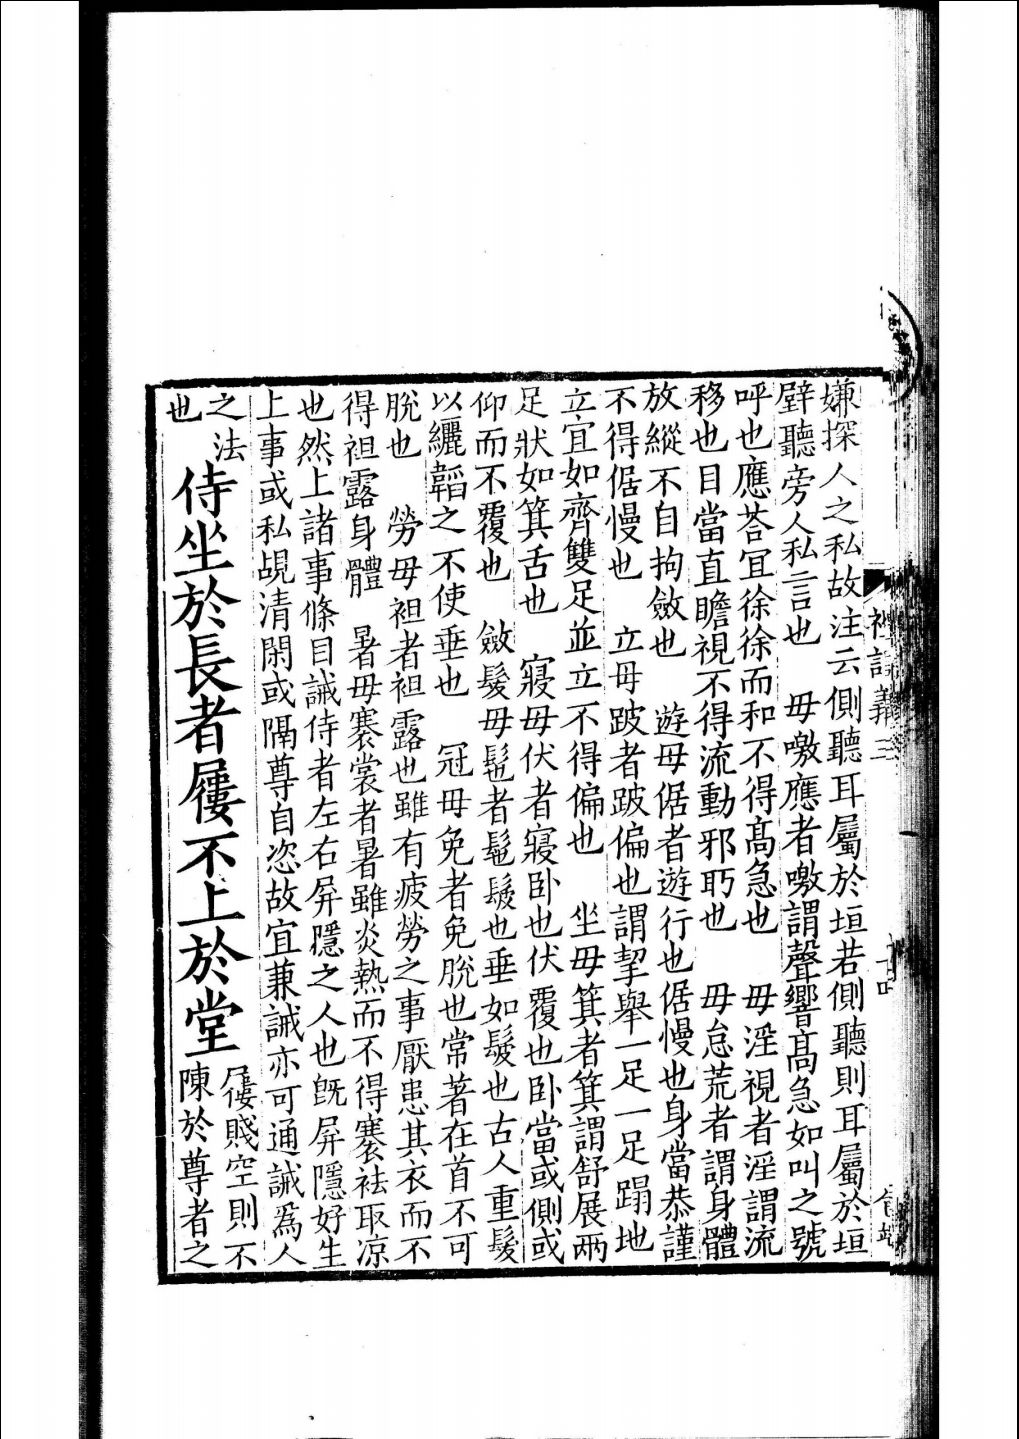 嫌探人之私故注云側聽耳屬於垣若側聽則耳屬於垣
壁聽旁人私言也 毋噭應者噭謂聲響髙急如叫之號
呼也應荅冝徐徐而和不得髙急也 毋淫視者淫謂流
移也目當直瞻視不得流動邪眄也 毋怠荒者謂身體
放縱不自拘斂也 遊毋倨者遊行也倨慢也身當恭謹
不得倨慢也 立毋跛者跛偏也謂挈舉一足一足蹋地
立宜如齊雙足並立不得偏也 坐毋箕者箕謂舒展兩
足狀如箕舌也 寢毋伏者寢卧也伏覆也卧當或側或
仰而不覆也 斂髮毋髢者髢髲也垂如髲也古人重髮
以纚韜之不使垂也 冠毋免者免脫也常著在首不可
脫也 勞毋袒者袒露也雖有疲勞之事厭患其衣而不
得袒露身體 暑毋褰裳者暑雖炎熱而不得褰袪取凉
也然上諸事條目誡侍者左右屏隱之人也旣屏隱好生
上事或私覘清閑或隔尊自恣故宜兼誡亦可通誡爲人
之法
也
侍坐於長者屨不上於堂
屨賤空則不
陳於尊者之
禮記義三